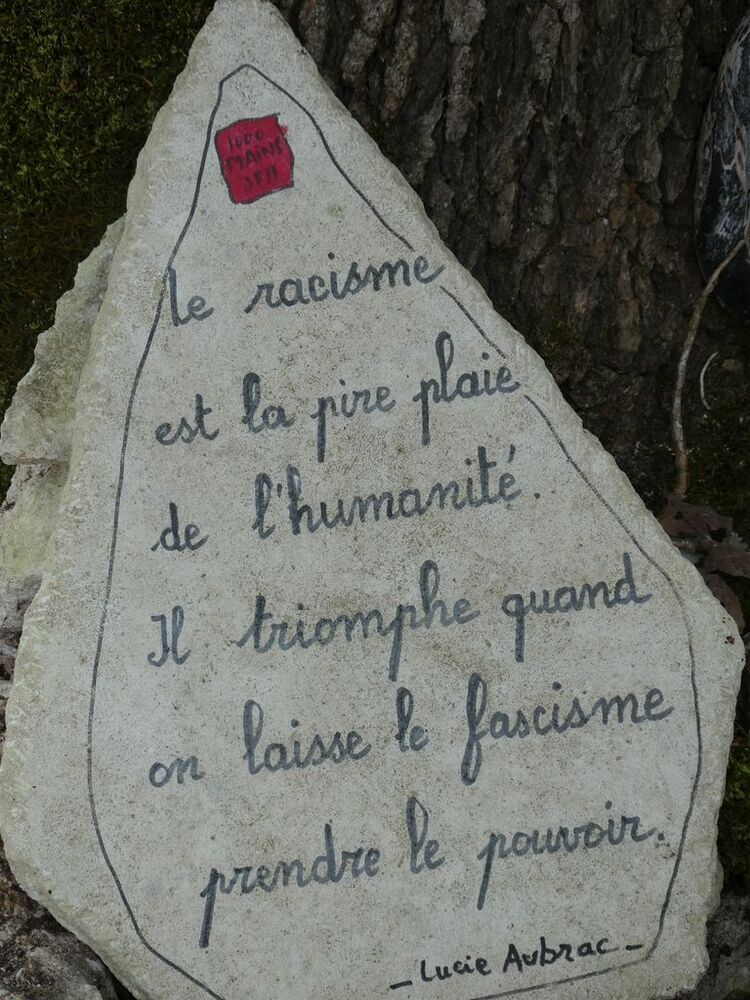 1000
MAINS
le racisme
est la pire plaie
de l'humanité.
Il triomphe quand
on laisse le fascisme
prendre le pouvoir.
- Lucie Aubrac -